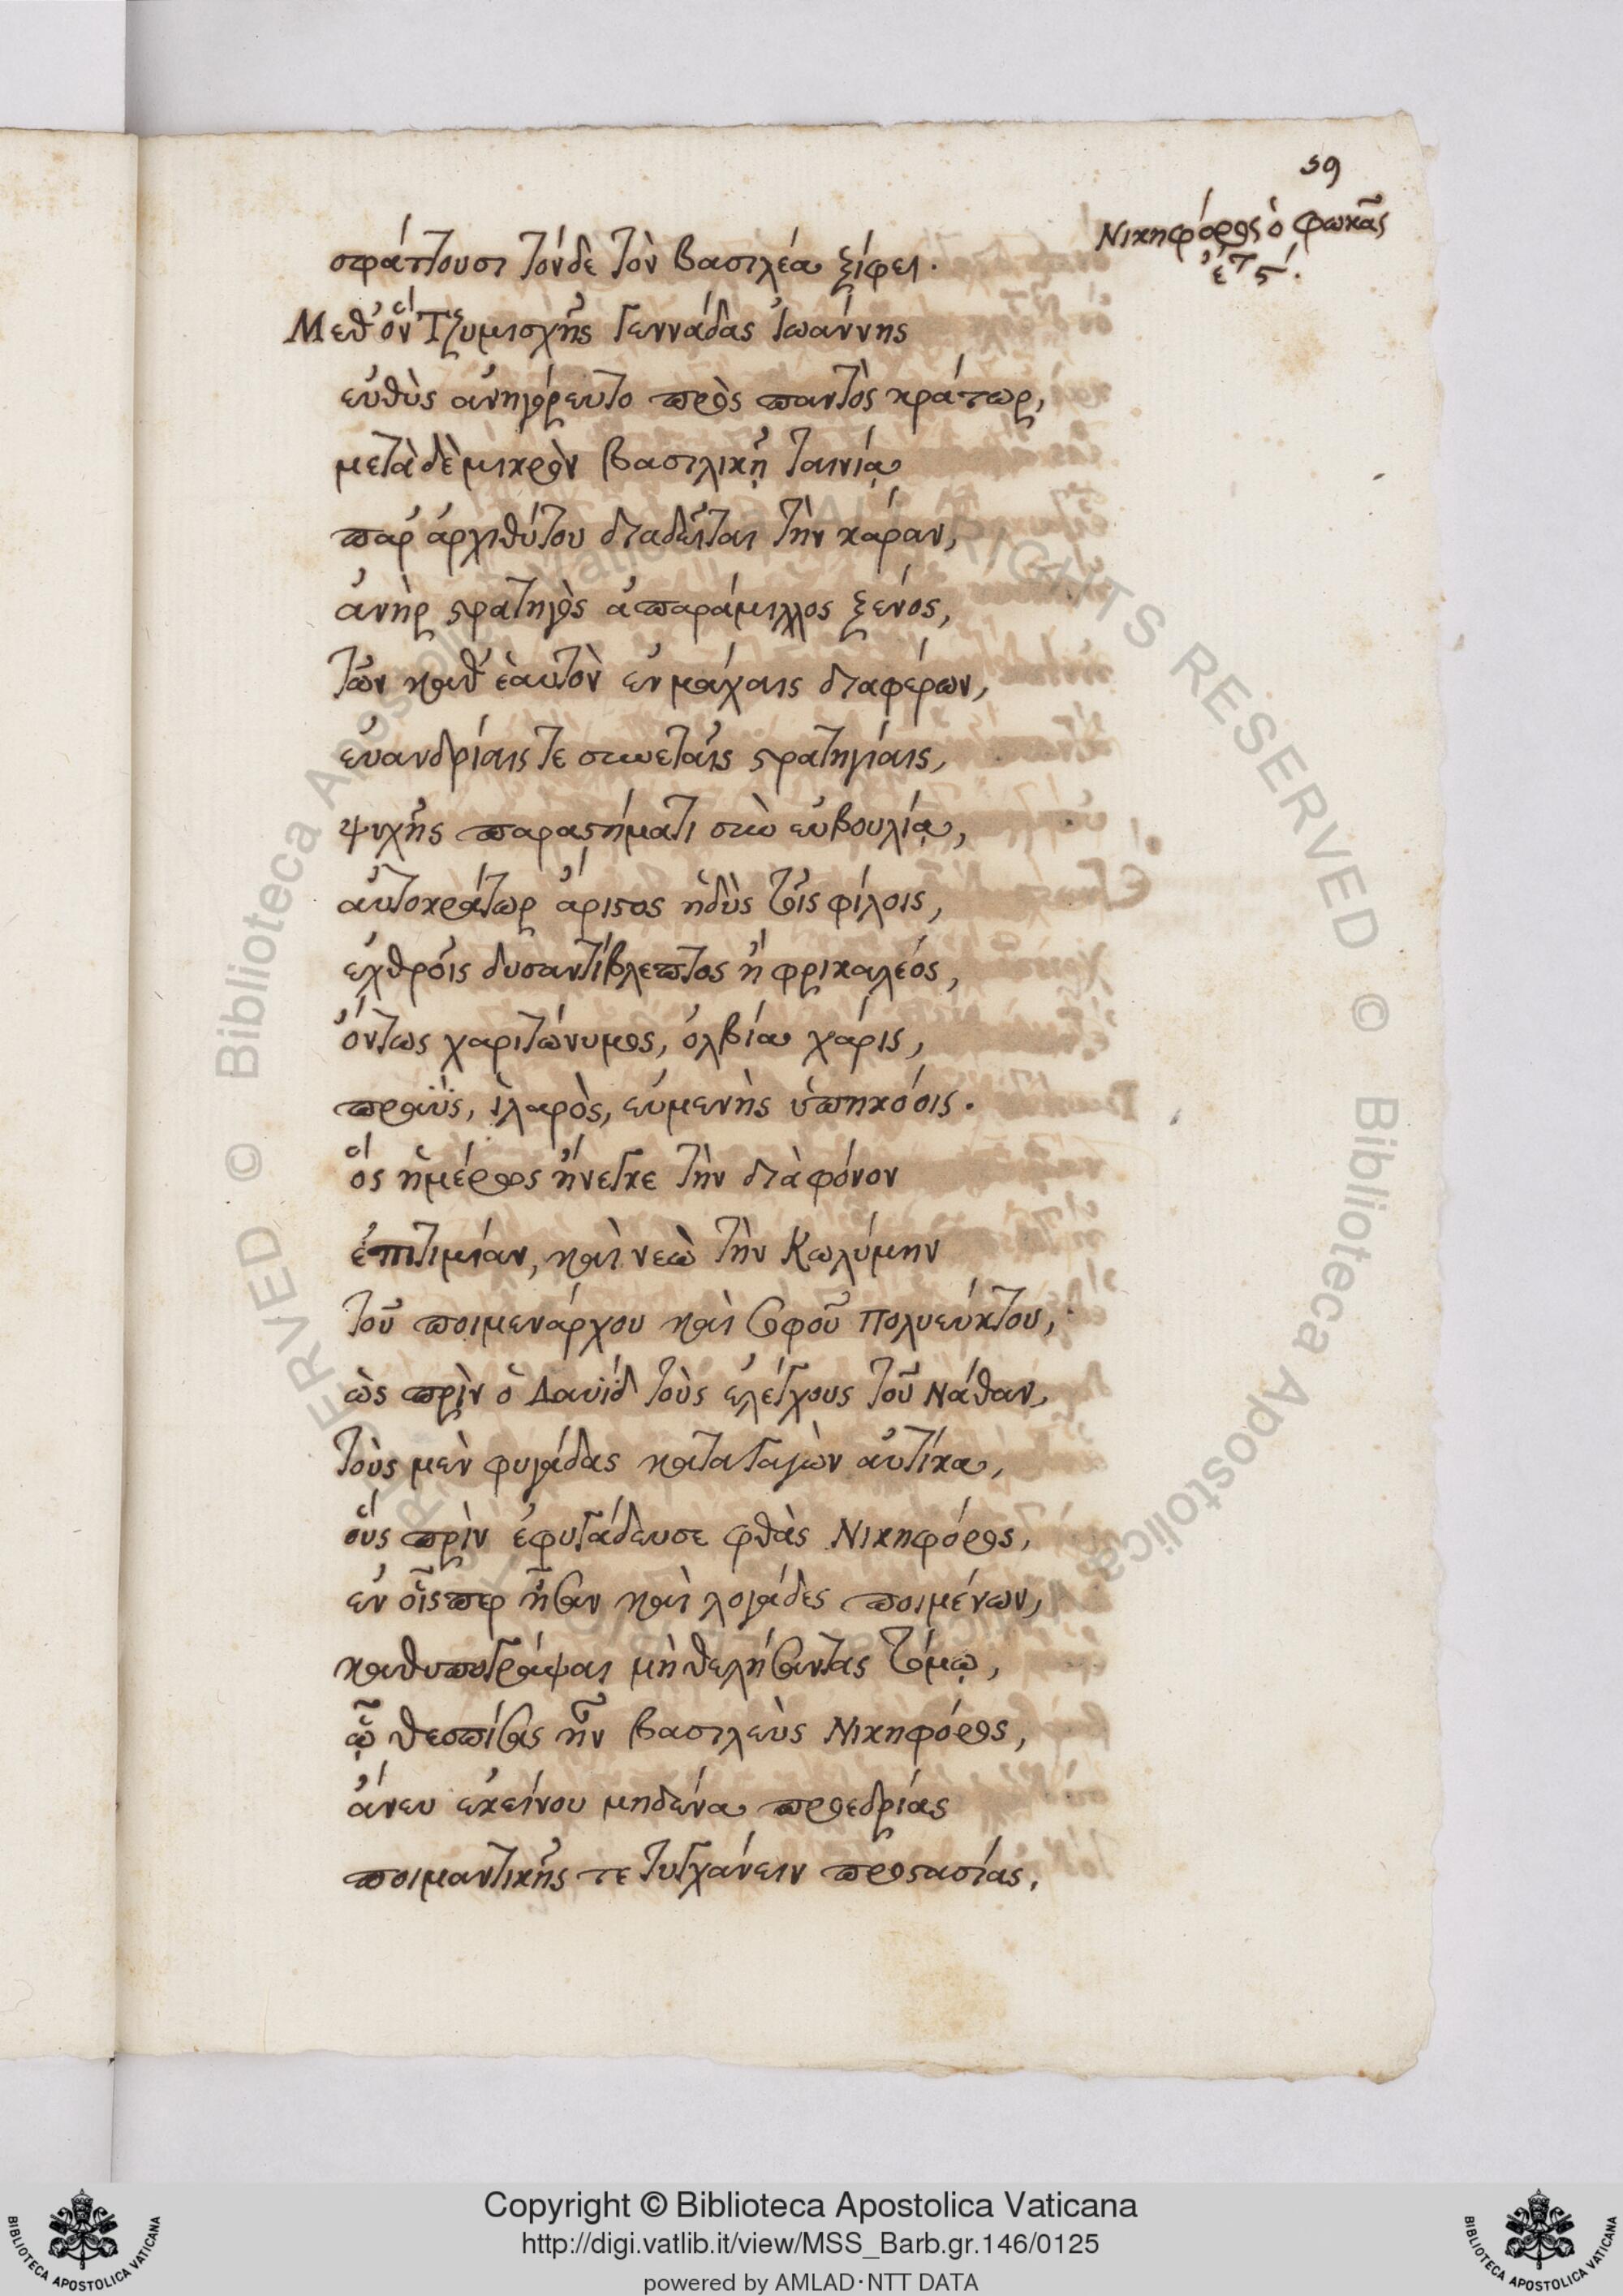 59
Νικηφόρος ὁ Φωκᾶς
ἔτ ϛ΄.
σφάττουσι τόνδε τὸν βασιλέα ξίφει.
Μεθ' ὃν Τζυμισχῆς γεννάδας Ἰωάννης
εὐθὺς ἀνηγόρευτο πρὸς παντὸς κράτωρ,
μετὰ δὲ μικρὸν βασιλικῇ ταινίᾳ
παρ' ἀρχιθύτου διαδεῖται τὴν κάραν,
ἀνὴρ στρατηγὸς ἀπαράμιλλος ξένος,
τῶν καθ' ἑαυτὸν ἐν μάχαις διαφέρων,
εὐανδρίαις τε συνεταῖς στρατηγίαις,
ψυχῆς παραστήματι σὺν εὐβουλίᾳ,
αὐτοκράτωρ ἄριστος ἡδὺς τοῖς φίλοις,
ἐχθροῖς δυσαντίβλεπτος ἢ φρικαλέος,
ὄντως χαριτώνυμος, ὀλβία χάρις,
πραῢς, ἱλαρὸς, εὐμενὴς ὑπηκόοις.
ὃς ἡμέρως ἤνεγκε τὴν διὰ φόνον
ἐπιτιμίαν, καὶ νεὼ τὴν κωλύμην
τοῦ ποιμενάρχου καὶ σοφοῦ Πολυεύκτου,
ὡς πρὶν ὁ Δαυῒδ τοὺς ἐλέγχους τοῦ Νάθαν,
τοὺς μὲν φυγάδας καταγαγὼν αὐτίκα,
οὓς πρὶν ἐφυγάδευσε φθὰς Νικηφόρος,
ἐν οἷσπερ ἦσαν καὶ λογάδες ποιμένων,
καθυπογράψαι μὴ θελήσαντας τόμῳ,
ᾧ θεσπίσας ἦν βασιλεὺς Νικηφόρος,
ἄνευ ἐκείνου μηδένα προεδρίας
ποιμαντικῆς τε τυγχάνειν προστασίας.
Copyright © Biblioteca Apostolica Vaticana
http://digi.vatlib.it/view/MSS_Barb.gr.146/0125
powered by AMLAD·NTT DATA